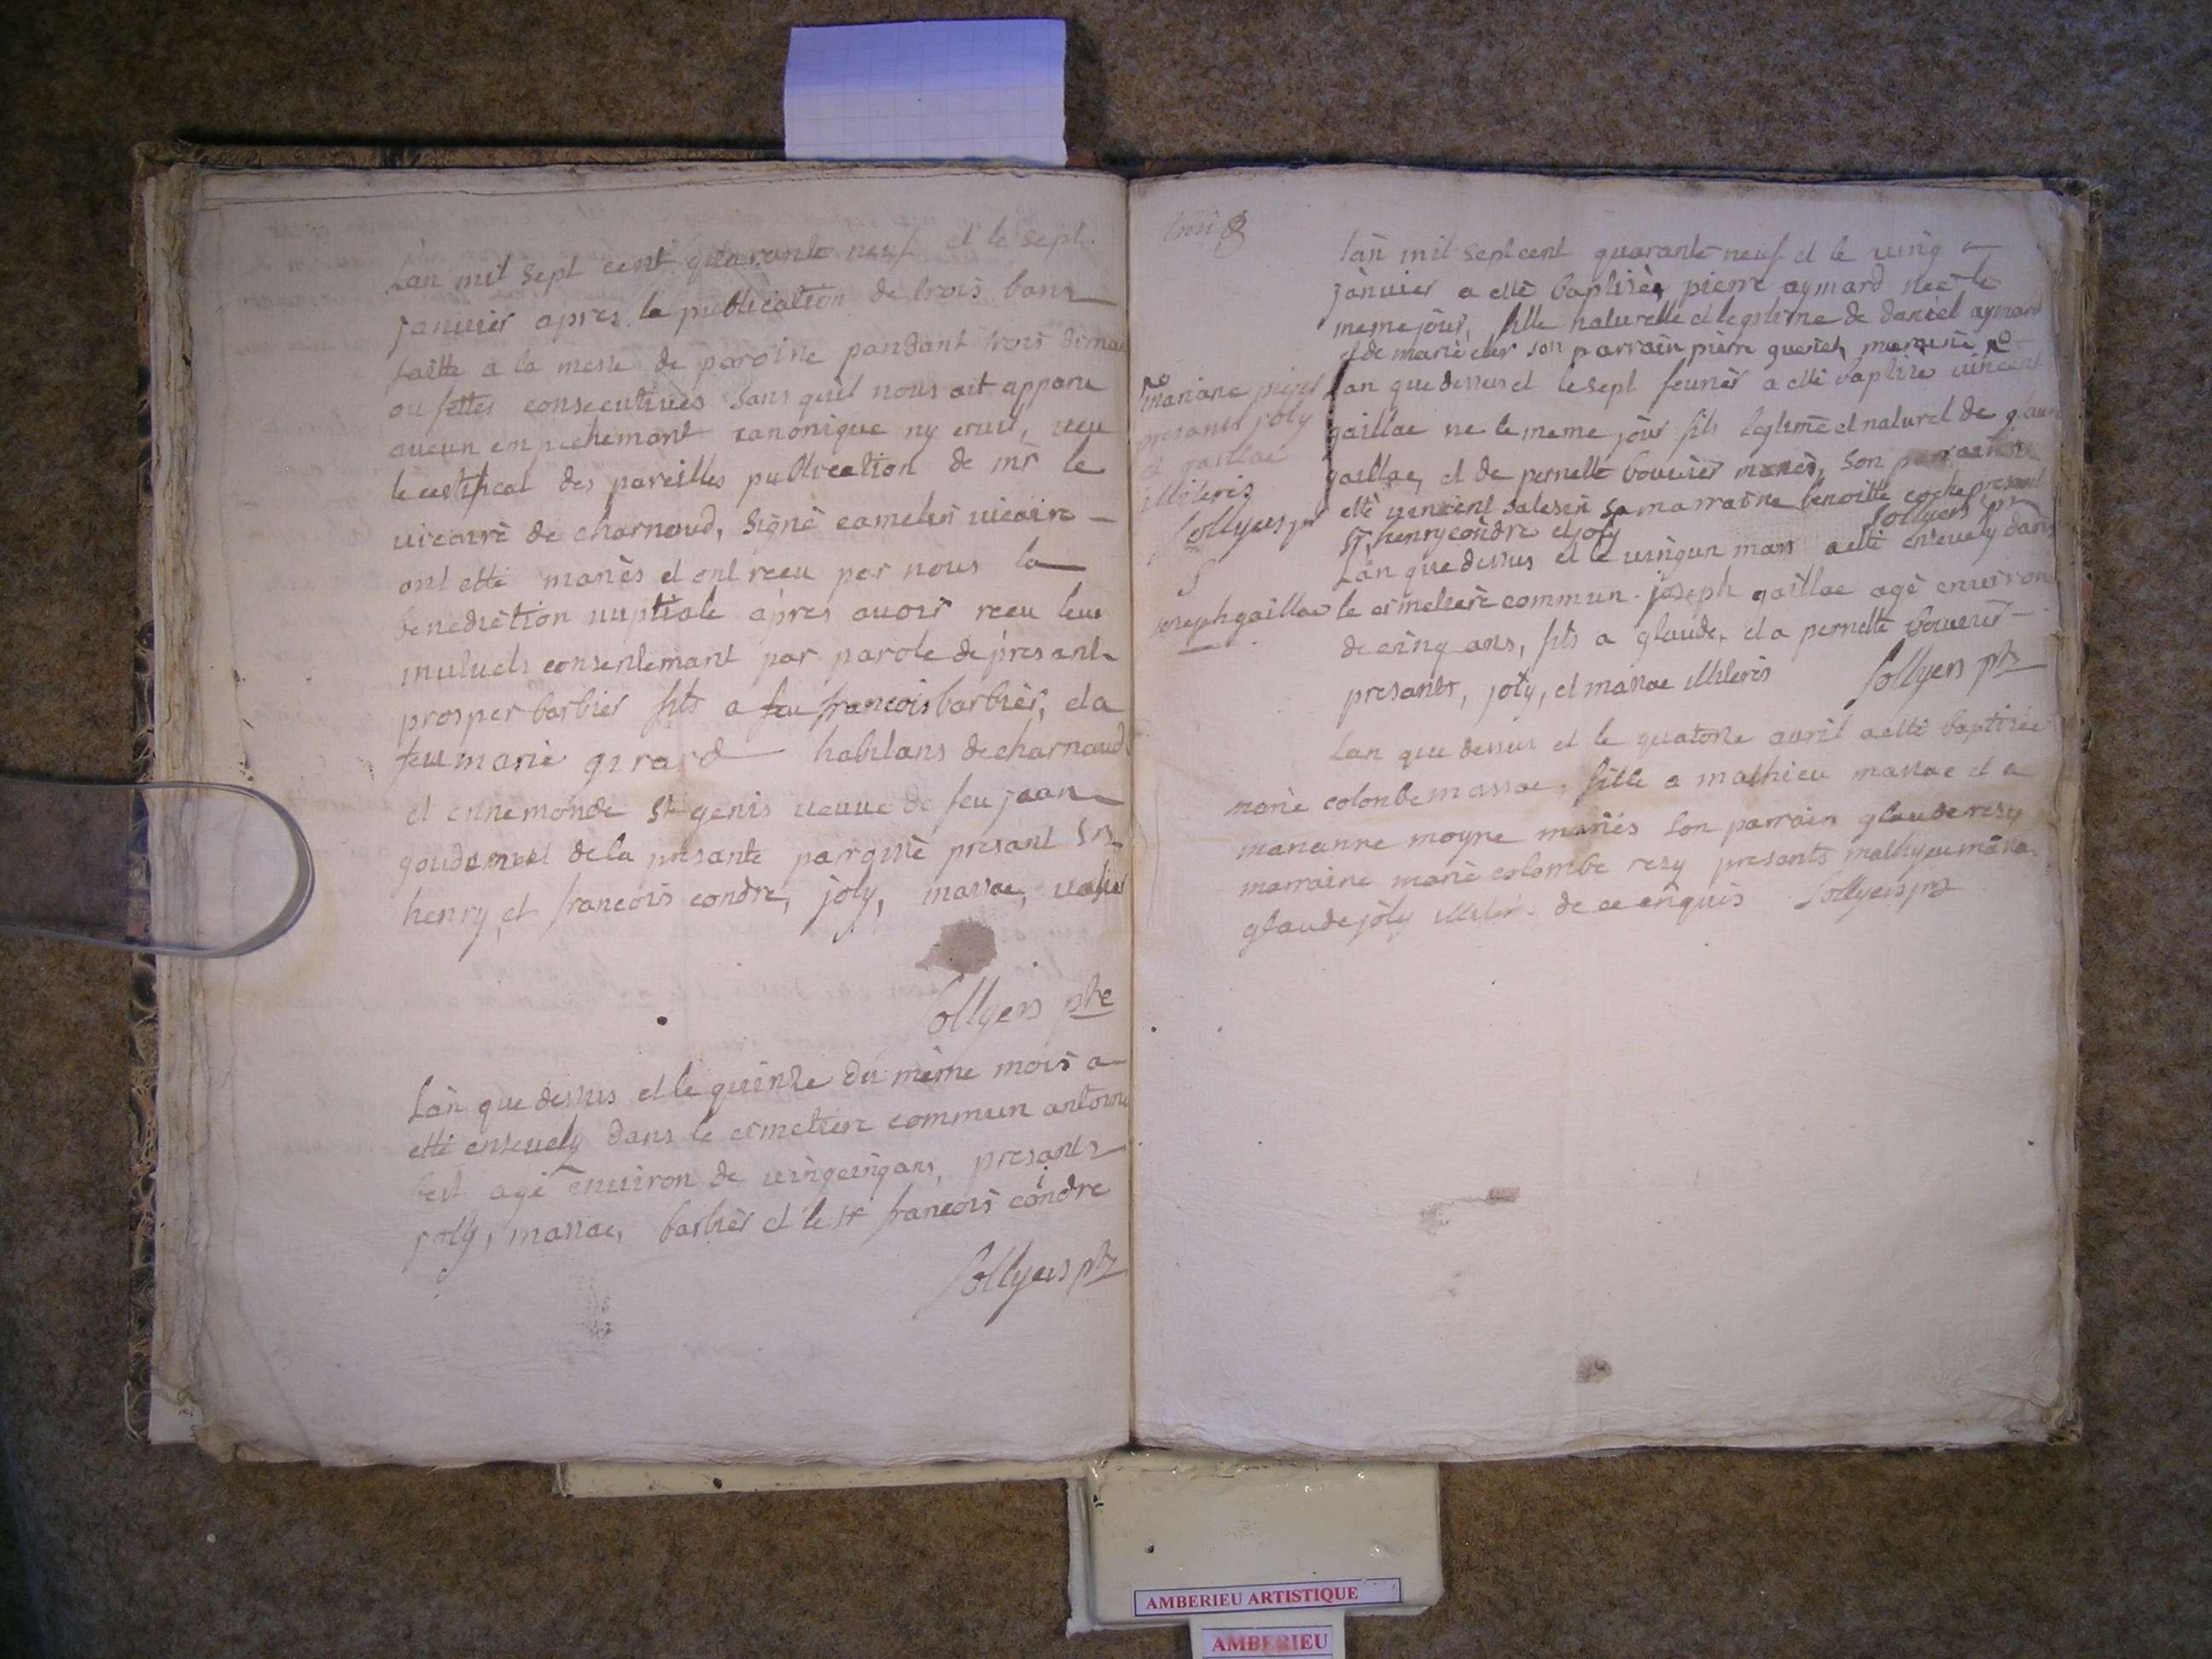 Lan mil sept cent quarante neuf et le sept
januier apres la publication de trois bans
faitte a la messe de paroisse pandant trois diman
ou fettes consecutiues sans quil nous ait apparu
aucun empechemant canonique ny ciuil, ueu
le certificat des pareilles publication de mr le
uicaire de charnoud, signè camelin uicaire
ont etté mariès et ont receu par nous la
benediction nuptiale apres auoir receu leur
mutuels consentemant par parole de presant
prosper barbier fils a feu francois barbier, et a
feu marie girard habitans de charnoud
et ennemonde st genis ueuue de feu jean
goudemet de la presante paroisse presant srs
henry, et francois condre, joly, massac,
Sollyers ptre
Lan que dessus et le quinze du même mois a
etté enseuely dans le cimetiere commun antoine
best agé enuiron de uingcinq ans, presants
joly, massac, barbier et le sr francois condre
Sollyers ptre
lan mil sept cent quarante neuf et le uing
januier a etté baptiseé pierre aymard neé le
meme jour, fille naturelle et legitime de daniel aymard
et de marie son parrain pierre marraine
mariane
presants joly
et gaillac
illiteris
Sollyers ptr
lan que dessus et le sept feurier a etté baptisé uincent
gaillac ne le meme jour fils legitime et naturel de glaude
gaillac, et de pernette bouuier mariés, son parrain
etté uincent salesin sa marraine benoitte coche presant
sr henry condre et joly Sollyers ptr
joseph gaillac
Lan que dessus et le uingun mars a etté enseuely dans
le cimetiere commun joseph gaillac agé enuiron
de cinq ans, fils a glaude, et a pernette bouuier
presants, joly, et massac illiteris Sollyers ptr
Lan que dessus et le quatorze auril a etté baptisée
marie colonbe massac, fille a mathieu massac et a
marianne moyne mariés son parrain glaude rey
marraine marie colombe rey presants mathyeu massac
glaude joly illiteris de ce enquis Sollyers ptr
AMBERIEU ARTISTIQUE
AMBERIEU